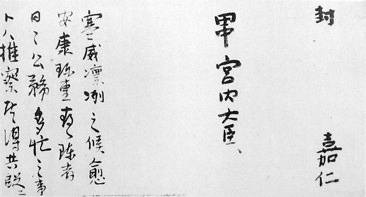 封 嘉仁
田中宮内大臣
寒威凛冽之候愈
安康珍重陳者
日々公務多忙之事
トハ推察候得共